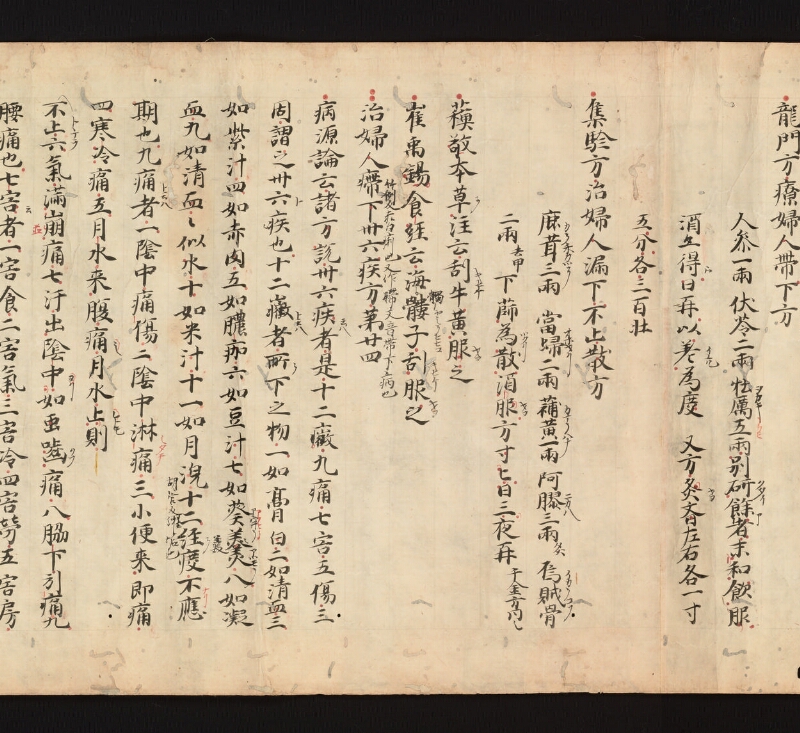 龍門方療婦人帶下方
人参一兩伏苓二兩牡厲五兩別研餘者末和飲服
酒亦得日再以差為度 又方灸齊左右各一寸
五分各三百壮
集驗方治婦人漏下不止散方
鹿茸三兩 當歸二兩 蒲黄一兩 阿膠三兩灸 烏賊骨
二兩去甲 下篩為散酒服方寸匕日三夜再 千金方同之
蘓敬本草注云刮牛黄服之
崔禹錫食經云海髑子刮服之
治婦人癦下卅六疾方第廿四
病源論云諸方説卅六疾者是十二癥九痛七害五傷三
固謂之卅六疾也十二癥者所下之物一如膏白二如清血三
如紫汁四如赤肉五如膿痂六如豆汁七如葵羮八如凝
血九如清血々似水十如米汁十一如月浣十二經度不應
期也九痛者一陰中痛傷二陰中淋痛三小便来即痛
四寒冷痛五月水来腹痛月水止則
不止六氣滿崩痛七汗出陰中如虫嚙痛八脇下引痛九
腰痛也七害者一害食二害氣三害冷四害勞五害房